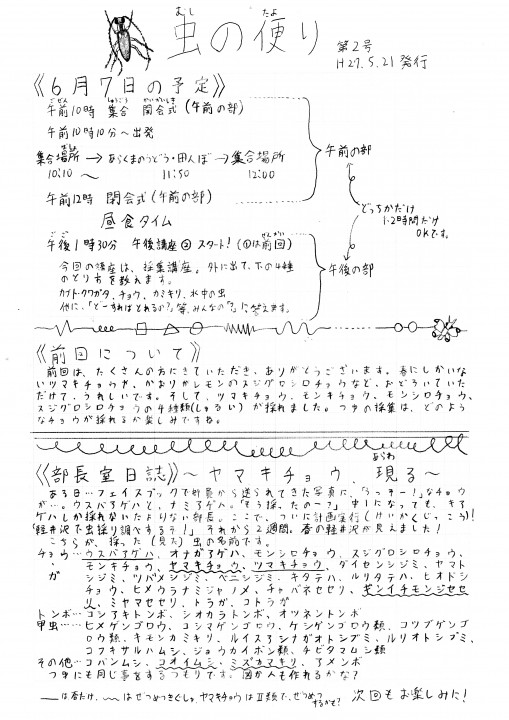 虫の便り
むし
たよ
第2号
H27.5.21発行
《6月7日の予定》
午前10時 集合 開会式(午前の部)
午前10時10分〜出発
集合場所→あらくまのうどう・田んぼ→集合場所
10:10 〜 11:50 12:00
午前12時 閉会式(午前の部)
昼食タイム
午後1時30分 午後講座② スタート!(①は前回)
今回の講座は、採集講座。外に出て、下の4種
のとり方を教えます。
カブト・クワガタ、チョウ、カミキリ、水中の虫
他に、「どーすればとれるの?」等、みんなの「?」に答えます。
午前の部
どっちかだけ
1、2時間だけ
OKです。
午後の部
《前回について》
前回は、たくさんの方にきていただき、ありがとうございます。春にしかいな
いツマキチョウや、かおりがレモンのスジグロシロチョウなど、おどろいていた
だけて、うれしいです。そして、ツマキチョウ、モンキチョウ、モンシロチョウ、
スジグロシロチョウの4種類(しゅるい)が採れました。つぎの採集は、どのよう
なチョウが採れるか楽しみですね。
《部長室日誌》〜ヤマキチョウ 現る〜
あらわ
ある日…フェイスブックで部員から送られてきた写真に、「うっそー!」なチョウ
が…。ウスバアゲハと、ナミアゲハ。「もう採ったのー?」
ゲハしか採れないたよりない部長。ここで、ついに計画実行(けいかくじっこう)!
「軽井沢で虫採り調べするデ!!」 それから2週間。春の軽井沢が見えました!
こちらが、採った(見た)虫の名前です。
チョウ…ウスバアゲハ オナガアゲハ、モンシロチョウ、スジグロシロチョウ、
・ モンキチョウ、ヤマキチョウ、ツマキチョウ、ダイセンシジミ、ヤマト
ガ シジミ、ツバメシジミ、ベニシジミ、キタテハ、ルリタテハ、ヒオドシ
チョウ、ヒメウラナミジャノメ、チャバネセセリ、ギンイチモンジセセ
リ、ミヤマセセリ、トラガ、コトラガ
トンボ…コシアキトンボ、シオカラトンボ、オツネントンボ
甲虫…ヒメゲンゴロウ、コシマゲンゴロウ、ケシゲンゴロウ類、コツブゲンゴ
ロウ類、キモンカミキリ、ルイスアシナガオトシブミ、ルリオトシブミ、
コフキサルハムシ、ジョウカイボン類、チビタマムシ類
その他…コバンムシ、コオイムシ・ミズカマキリ、アメンボ
つぎにも同じ事をするつもりです。図が人も作れるかな?
__は春だけ、〜〜はぜつめつきぐしゅ。ヤマキチョウはⅡ類で、ぜつめつ
するかも?
次回もお楽しみに!